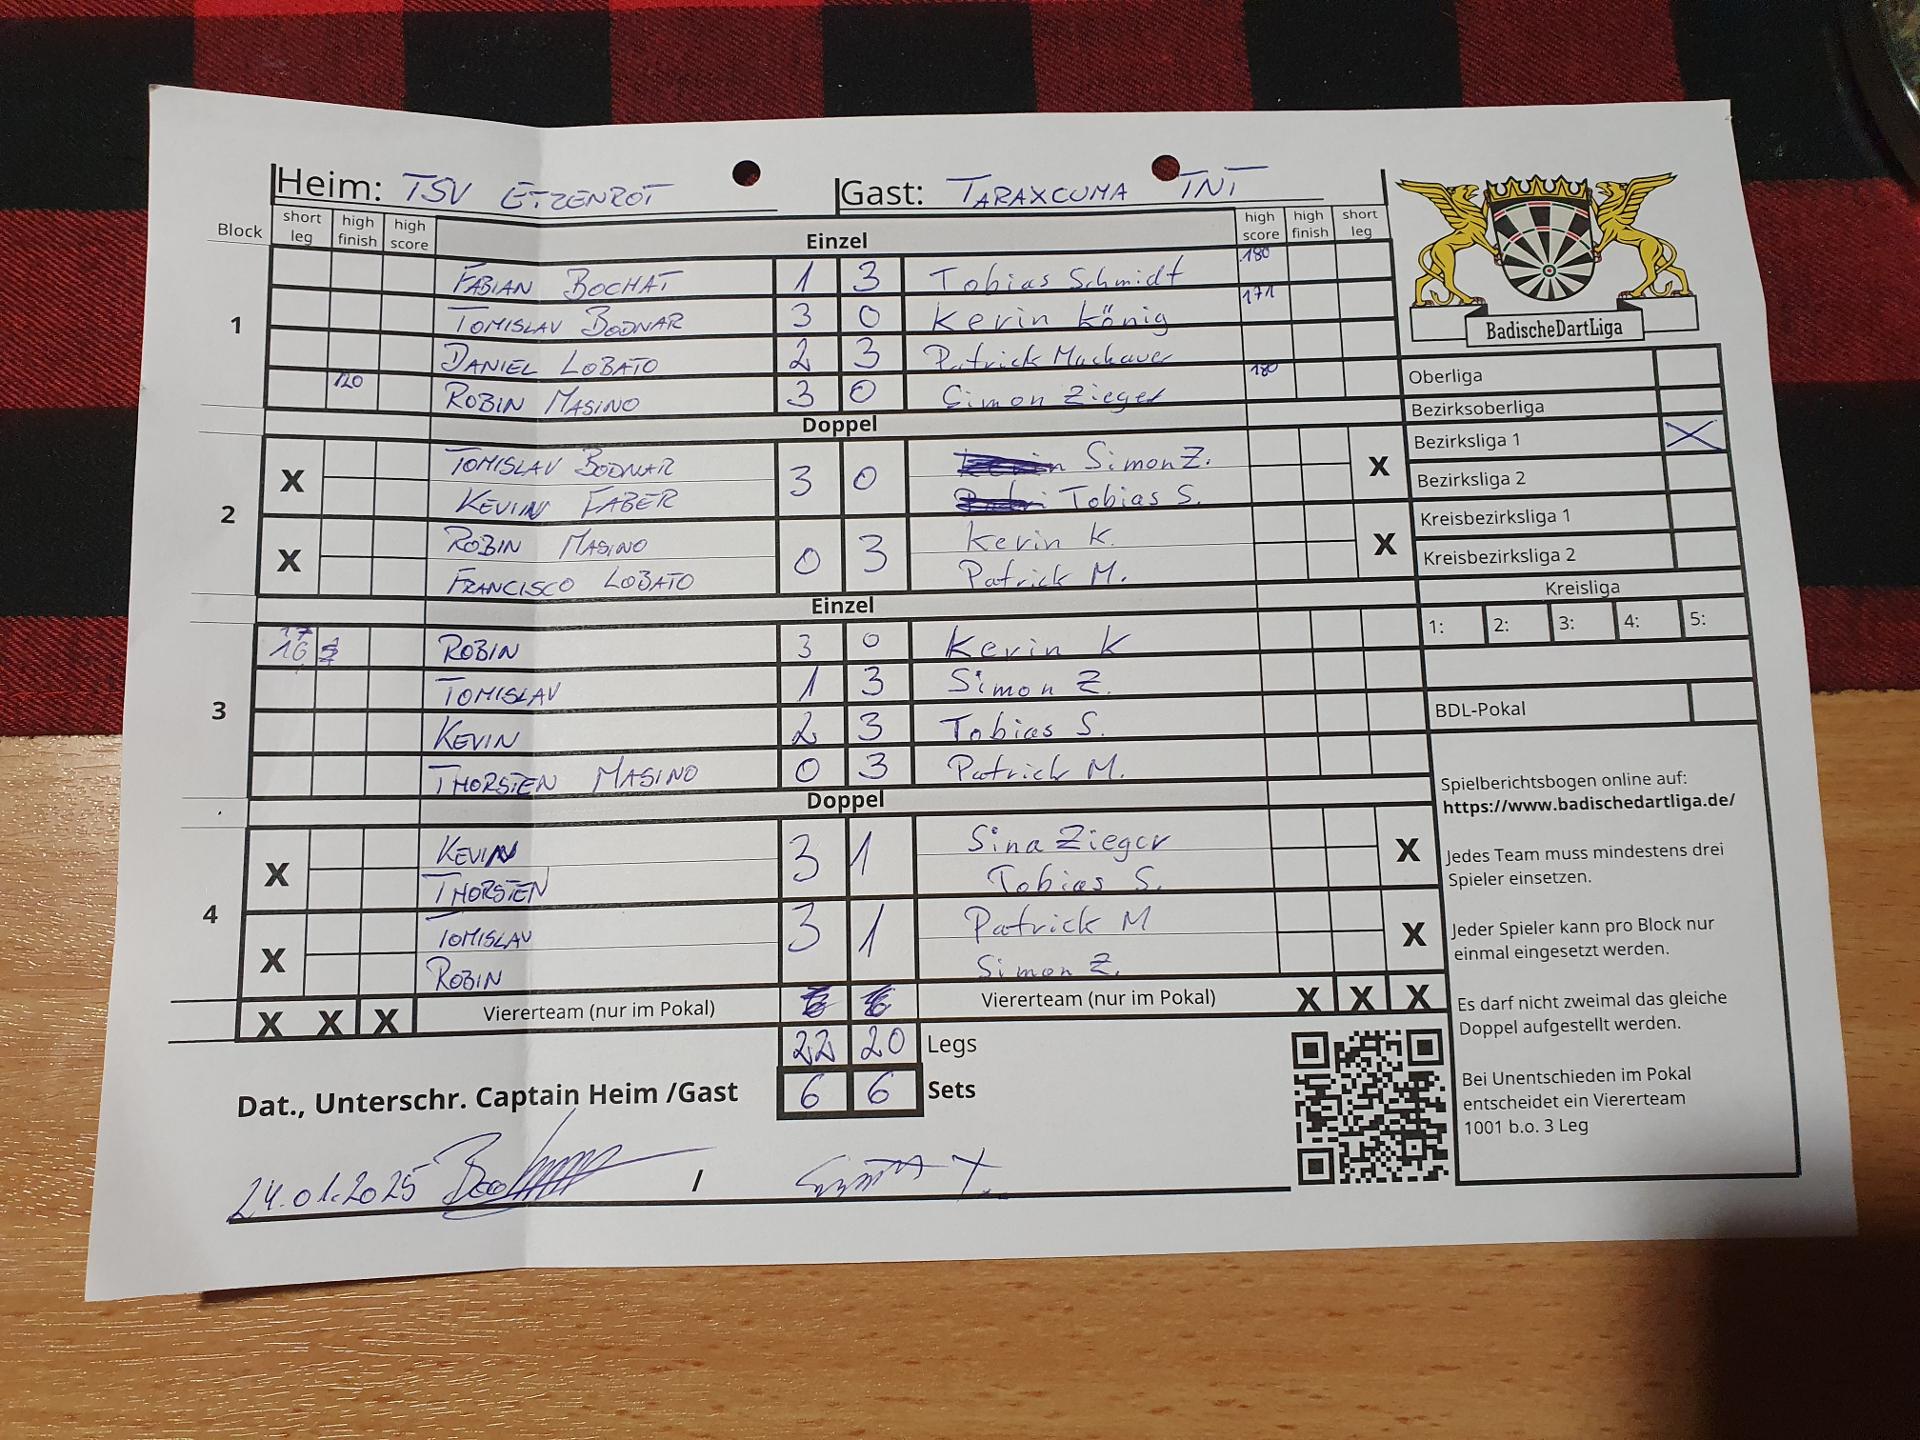 Heim: TSV ETZENROT Gast: TARAXCUMA TNT
Block short leg high finish high score Einzel high score high finish short leg
1
FABIAN BOCHAT 1 3 Tobias Schmidt 180
TOMISLAV BODNAR 3 0 Kevin König 171
DANIEL LOBATO 2 3 Patrick Machauer
120 ROBIN MASINO 3 0 Simon Zieger 180
Doppel
2
X TOMISLAV BODNAR 3 0 Simon Z. X
KEVIN FABER Tobias S.
X ROBIN MASINO 0 3 Kevin K. X
FRANCISCO LOBATO Patrick M.
Einzel
3
17
16 ROBIN 3 0 Kevin K
TOMISLAV 1 3 Simon Z.
KEVIN 2 3 Tobias S.
THORSTEN MASINO 0 3 Patrick M.
Doppel
4
X KEVIN 3 1 Sina Zieger X
THORSTEN Tobias S.
X TOMISLAV 3 1 Patrick M X
ROBIN Simon Z.
X X X Viererteam (nur im Pokal) Viererteam (nur im Pokal) X X X
22 20 Legs
6 6 Sets
Dat., Unterschr. Captain Heim /Gast
24.01.2025 /
BadischeDartLiga
Oberliga
Bezirksoberliga
Bezirksliga 1 X
Bezirksliga 2
Kreisbezirksliga 1
Kreisbezirksliga 2
Kreisliga
1: 2: 3: 4: 5:
BDL-Pokal
Spielberichtsbogen online auf:
https://www.badischedartliga.de/
Jedes Team muss mindestens drei
Spieler einsetzen.
Jeder Spieler kann pro Block nur
einmal eingesetzt werden.
Es darf nicht zweimal das gleiche
Doppel aufgestellt werden.
Bei Unentschieden im Pokal
entscheidet ein Viererteam
1001 b.o. 3 Leg